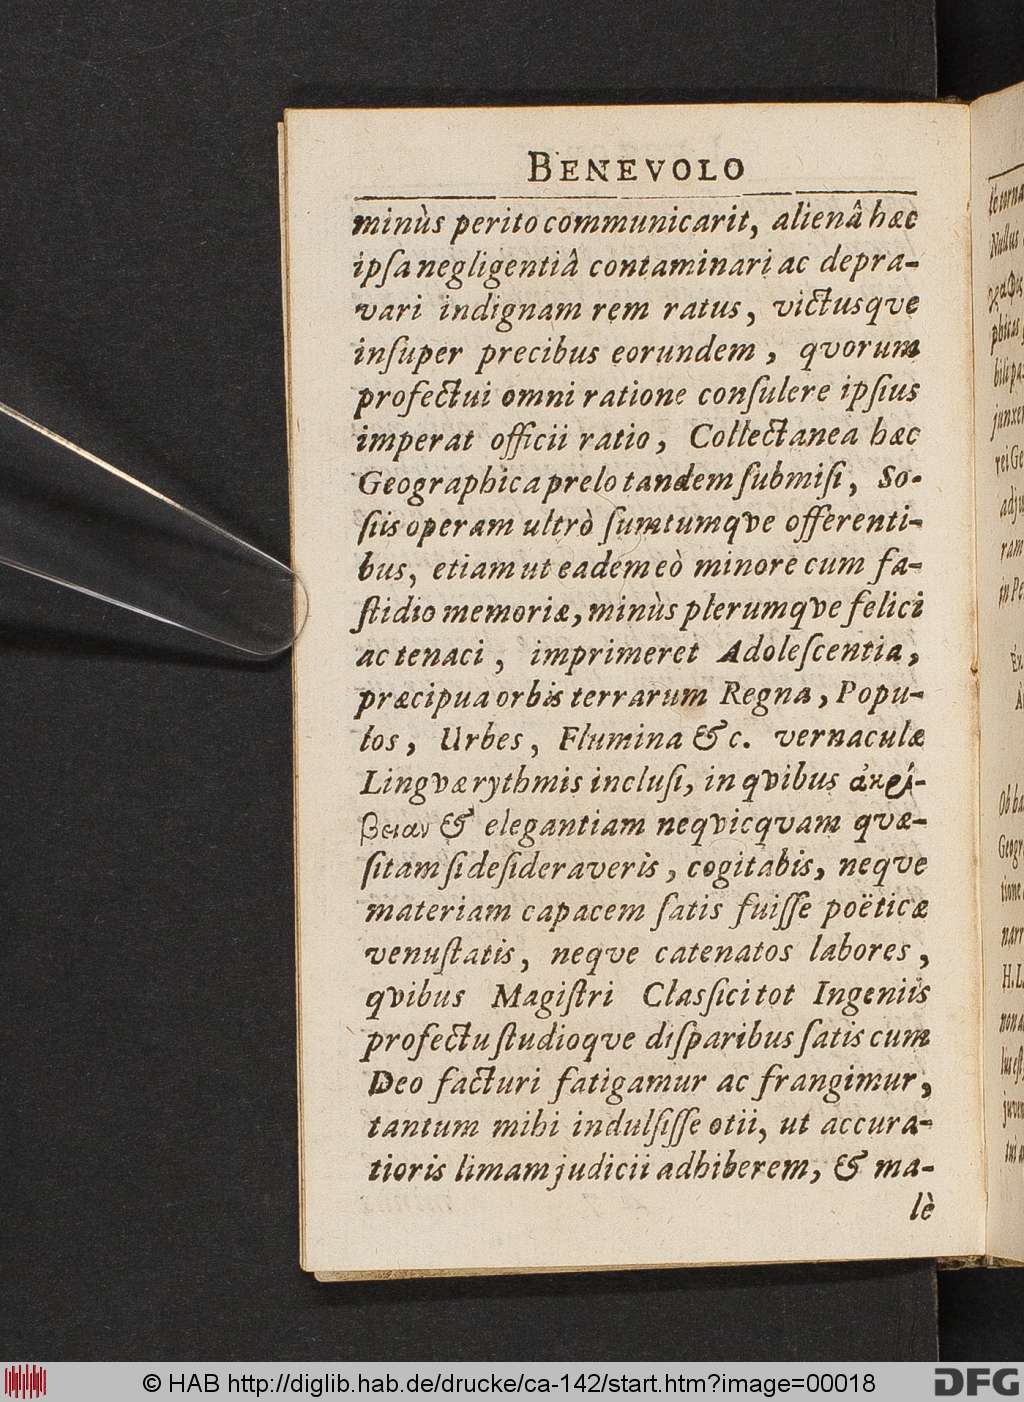 BENEVOLO
minùs perito communicarit, alienâ hæc
ipſa negligentiâ contaminari ac depra-
vari indignam rem ratus, victusqve
inſuper precibus eorundem, qvorum
profectui omni ratione conſulere ipſius
imperat officii ratio, Collectanea hæc
Geographica prelo tandem ſubmiſi, So-
ſiis operam ultrò ſumtumqve offerenti-
bus, etiam ut eadem eò minore cum fa-
ſtidio memoriæ, minùs plerumqve felici
ac tenaci, imprimeret Adoleſcentia,
præcipua orbis terrarum Regna, Popu-
los, Urbes, Flumina &c. vernaculæ
Lingvæ rythmis incluſi, in qvibus ἀκρί-
βειαν & elegantiam neqvicqvam qvæ-
ſitam ſi deſideraveris, cogitabis, neqve
materiam capacem ſatis fuiſſe poëticæ
venuſtatis, neqve catenatos labores,
qvibus Magiſtri Clasſici tot Ingeniis
profectu ſtudioqve diſparibus ſatis cum
Deo facturi fatigamur ac frangimur,
tantum mihi indulſiſſe otii, ut accura-
tioris limam judicii adhiberem, & ma-
lè
© HAB http://diglib.hab.de/drucke/ca-142/start.htm?image=00018
DFG